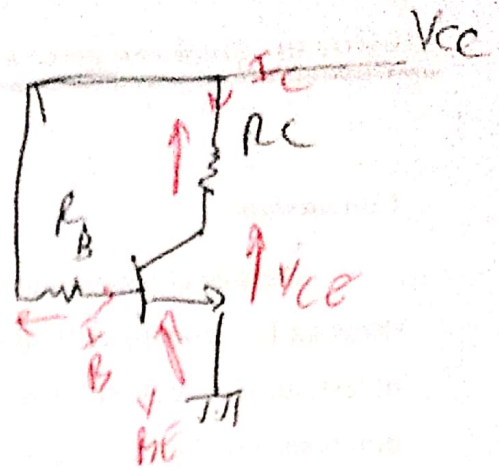 VCC
IC
RC
RB
VCE
IB
VBE